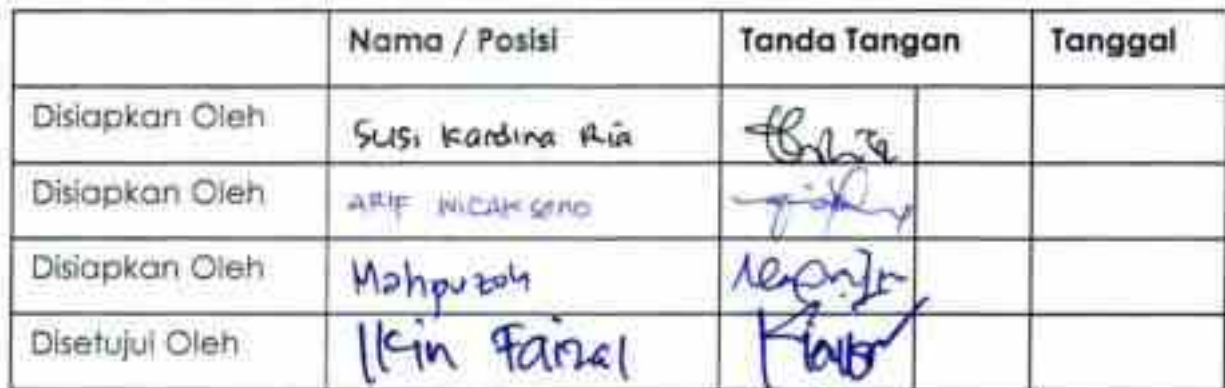 Nama / Posisi Tanda Tangan Tanggal
Disiapkan Oleh Susi Kardina Ria
Disiapkan Oleh ARIF WICAKSONO
Disiapkan Oleh Mahpuzoh
Disetujui Oleh Ikin Faizal